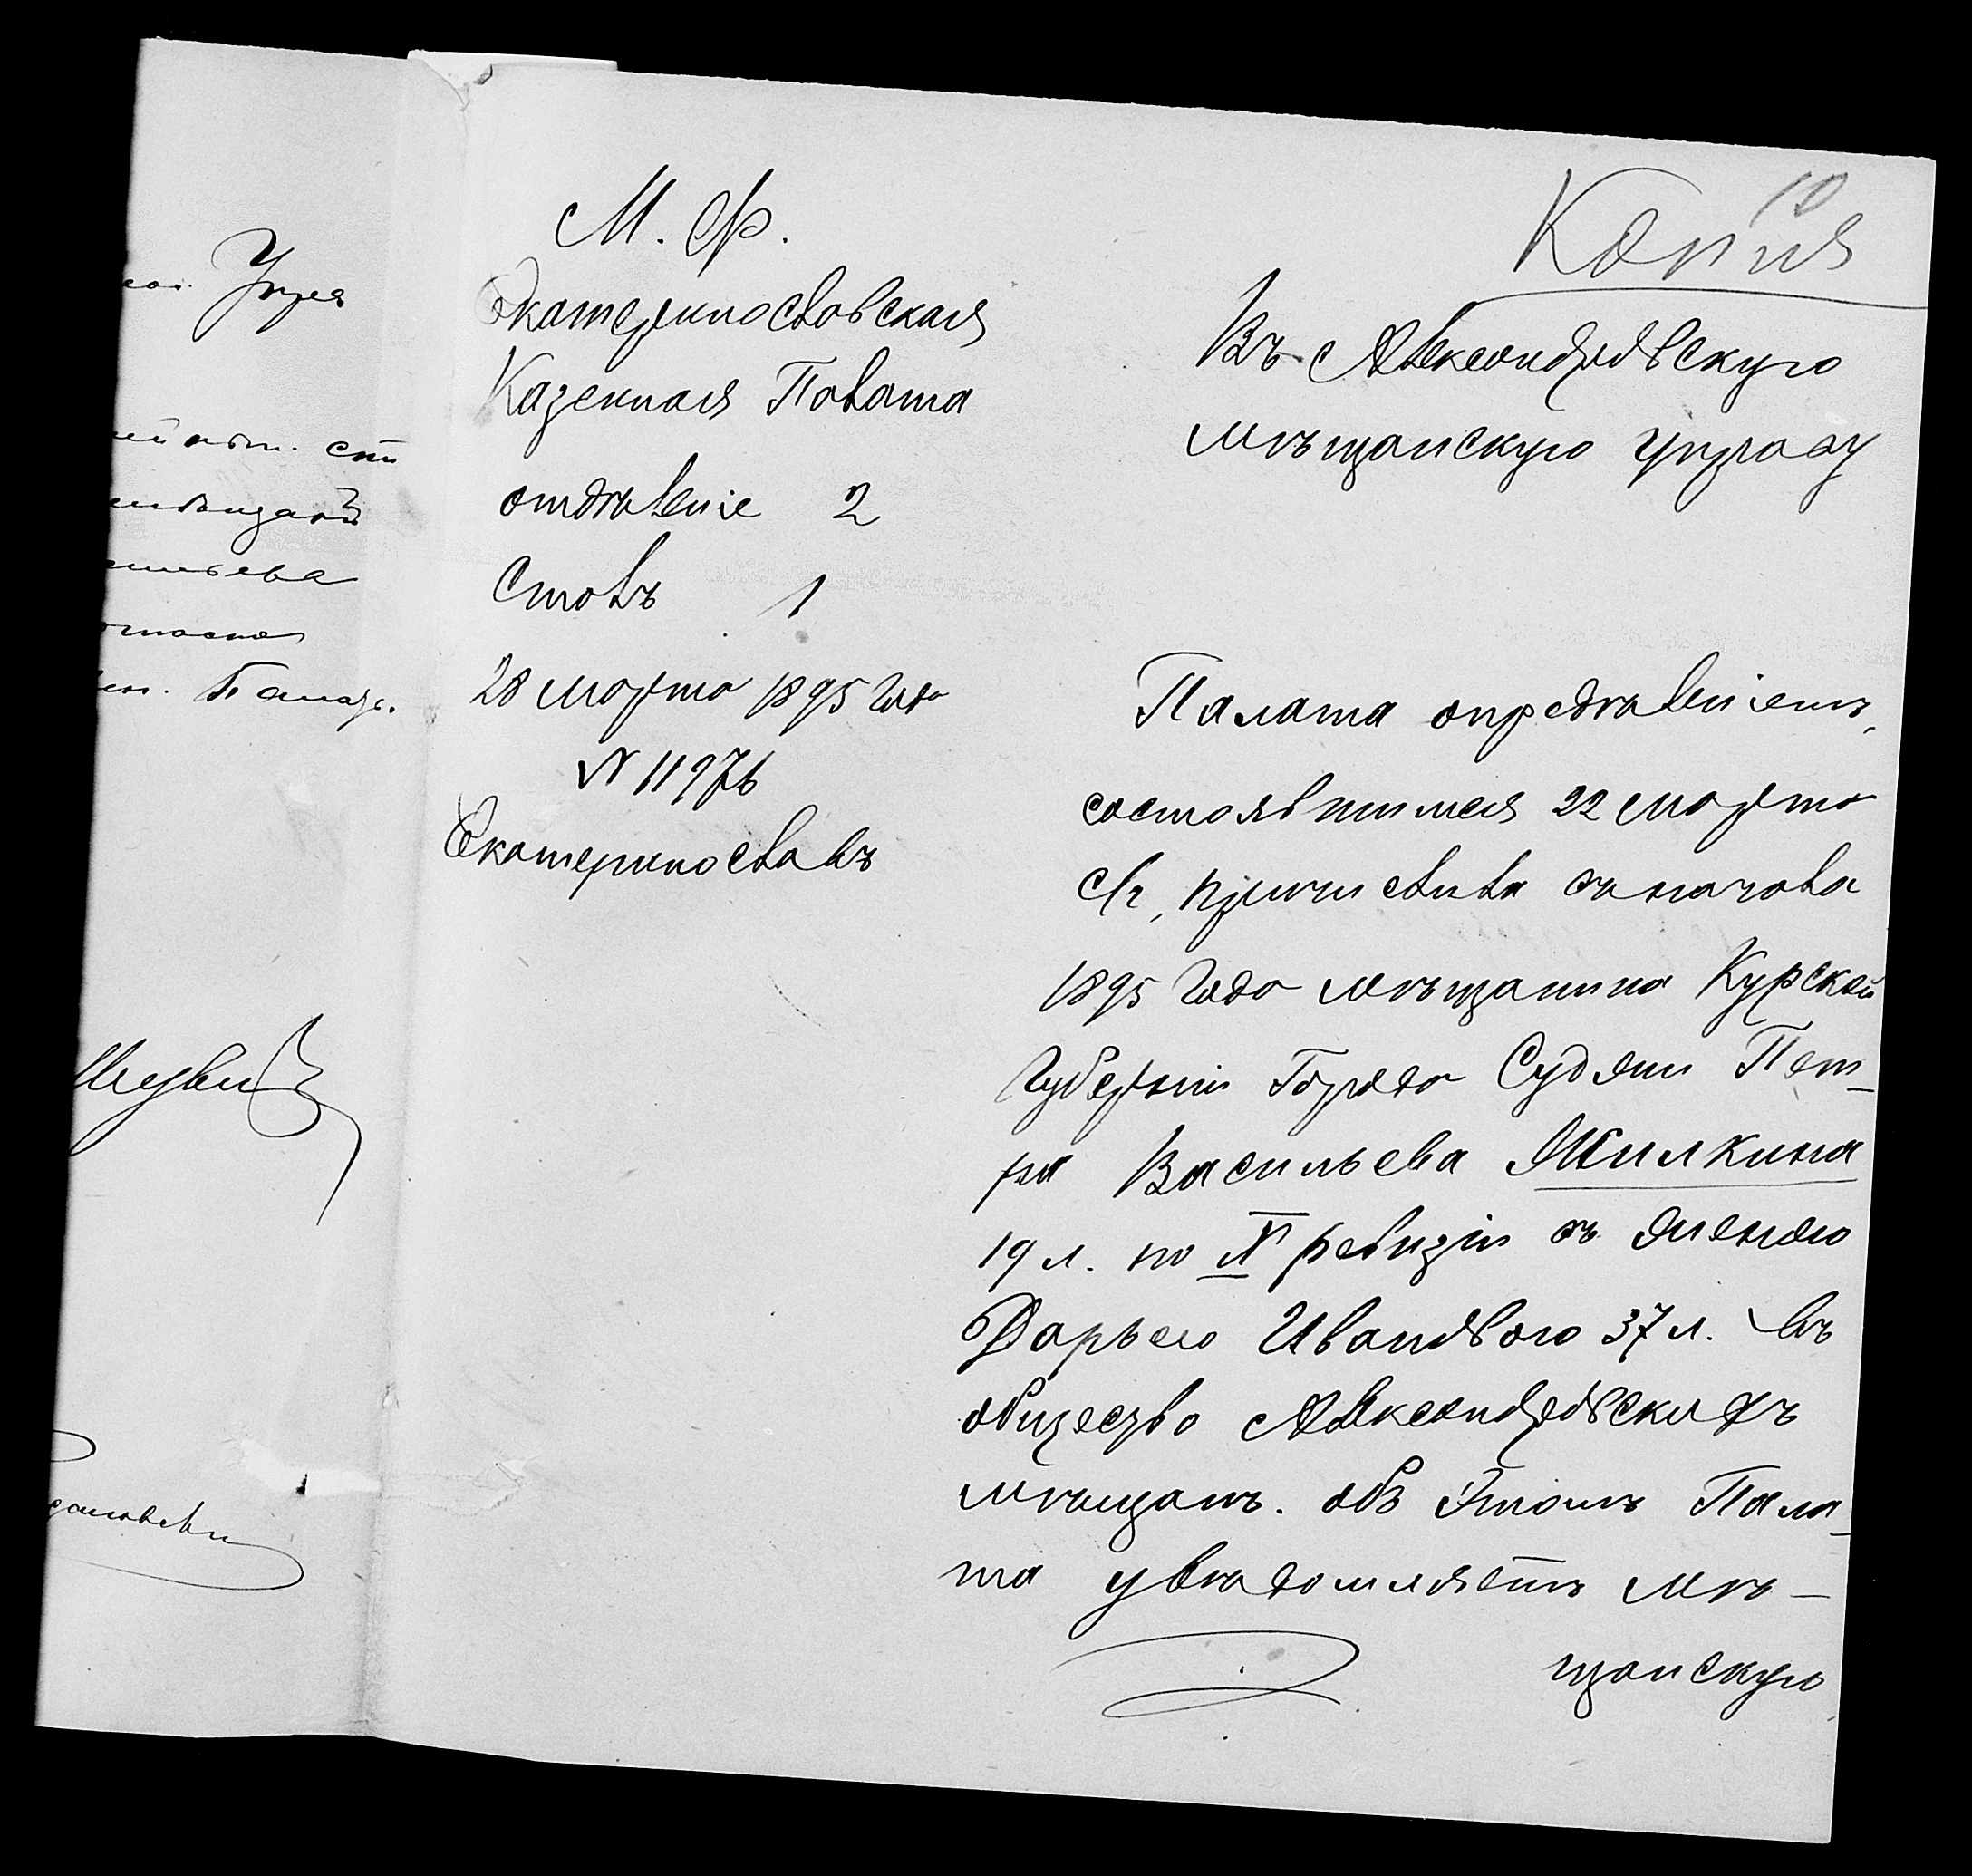 Управ
М. Ф.
Екатеринославская
Казенная Палата
отдѣленіе 2
Столъ 1
28 марта 1895 года
N 11976
Екатеринославъ
10
Копія
Въ Александровскую
мѣщанскую управу
Палата опредѣленіемъ,
состоявшимся 22 марта
с/г, причислила съ начала
1895 года мѣщанина Курской
Губерніи Города Суджи Пет-
ра Васильева Жилкина
19 л. по X ревизіи съ женою
Дарьею Ивановою 37 л. въ
общество Александровскихъ
мѣщанъ. объ этомъ Пала-
та увѣдомляетъ мѣ-
щанскую